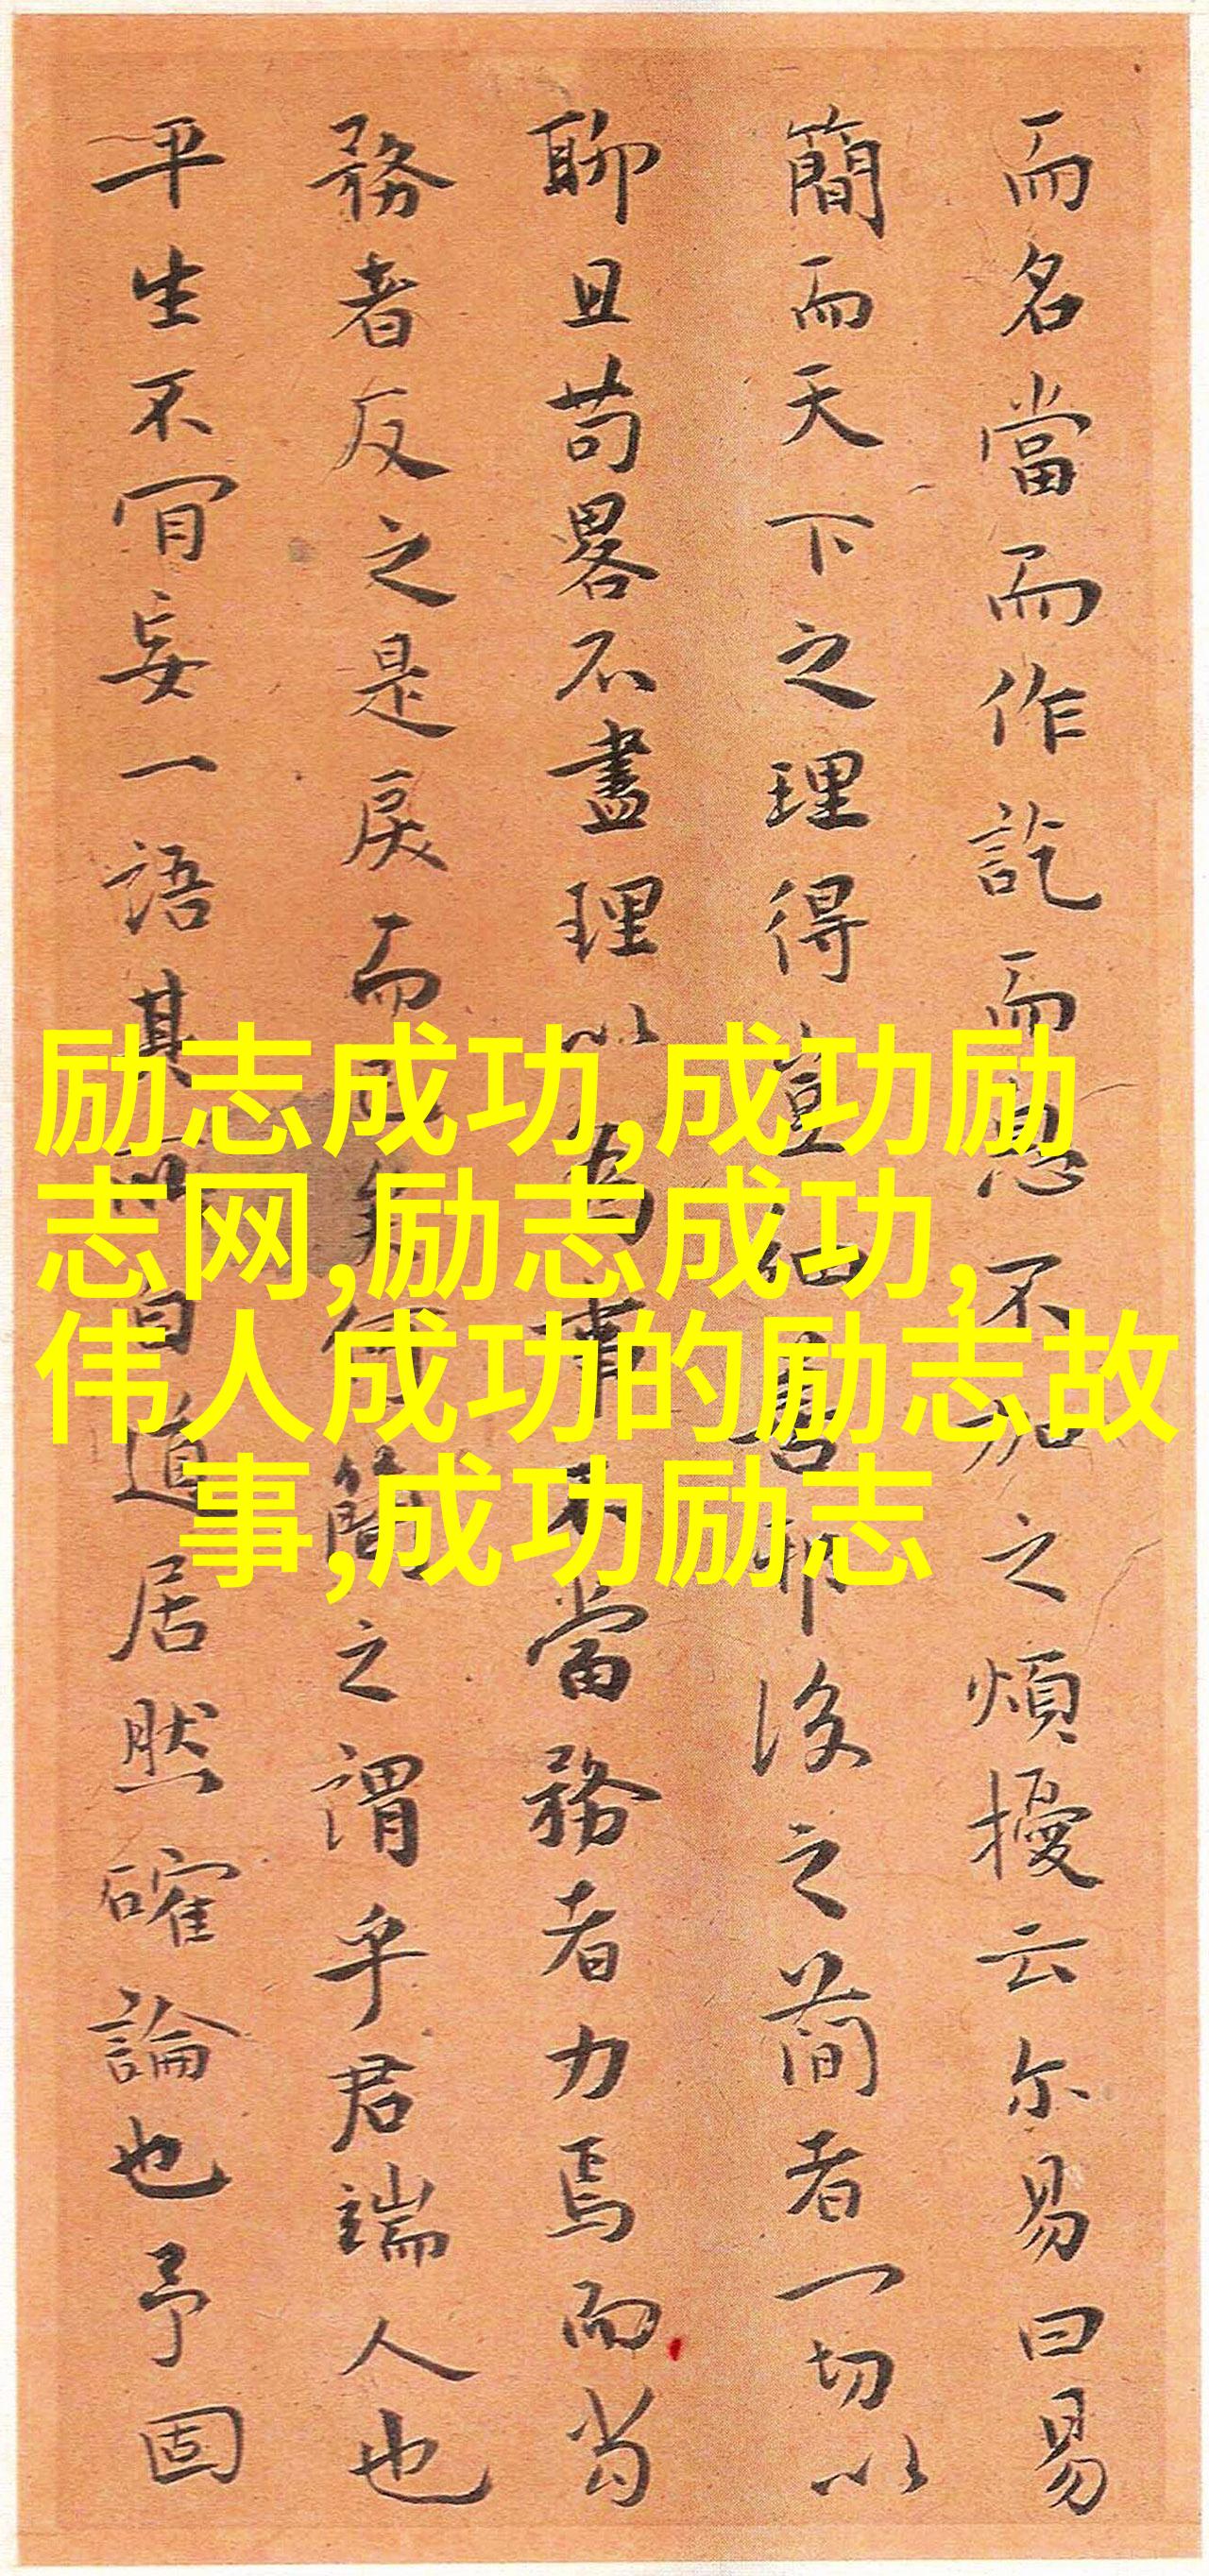 而名當而作訖而息不加之煩擾云尔易曰易
簡而天下之理得豈細書耶後之简者一切以
聊且苟畧不盡理以為事不當務者力焉而當
務者反之是戾而已矣何簡之謂乎君端人也
平生不肎妄一語其所自道居然確論也予固
励志成功,成功励
志网,励志成功,
伟人成功的励志故
事,成功励志